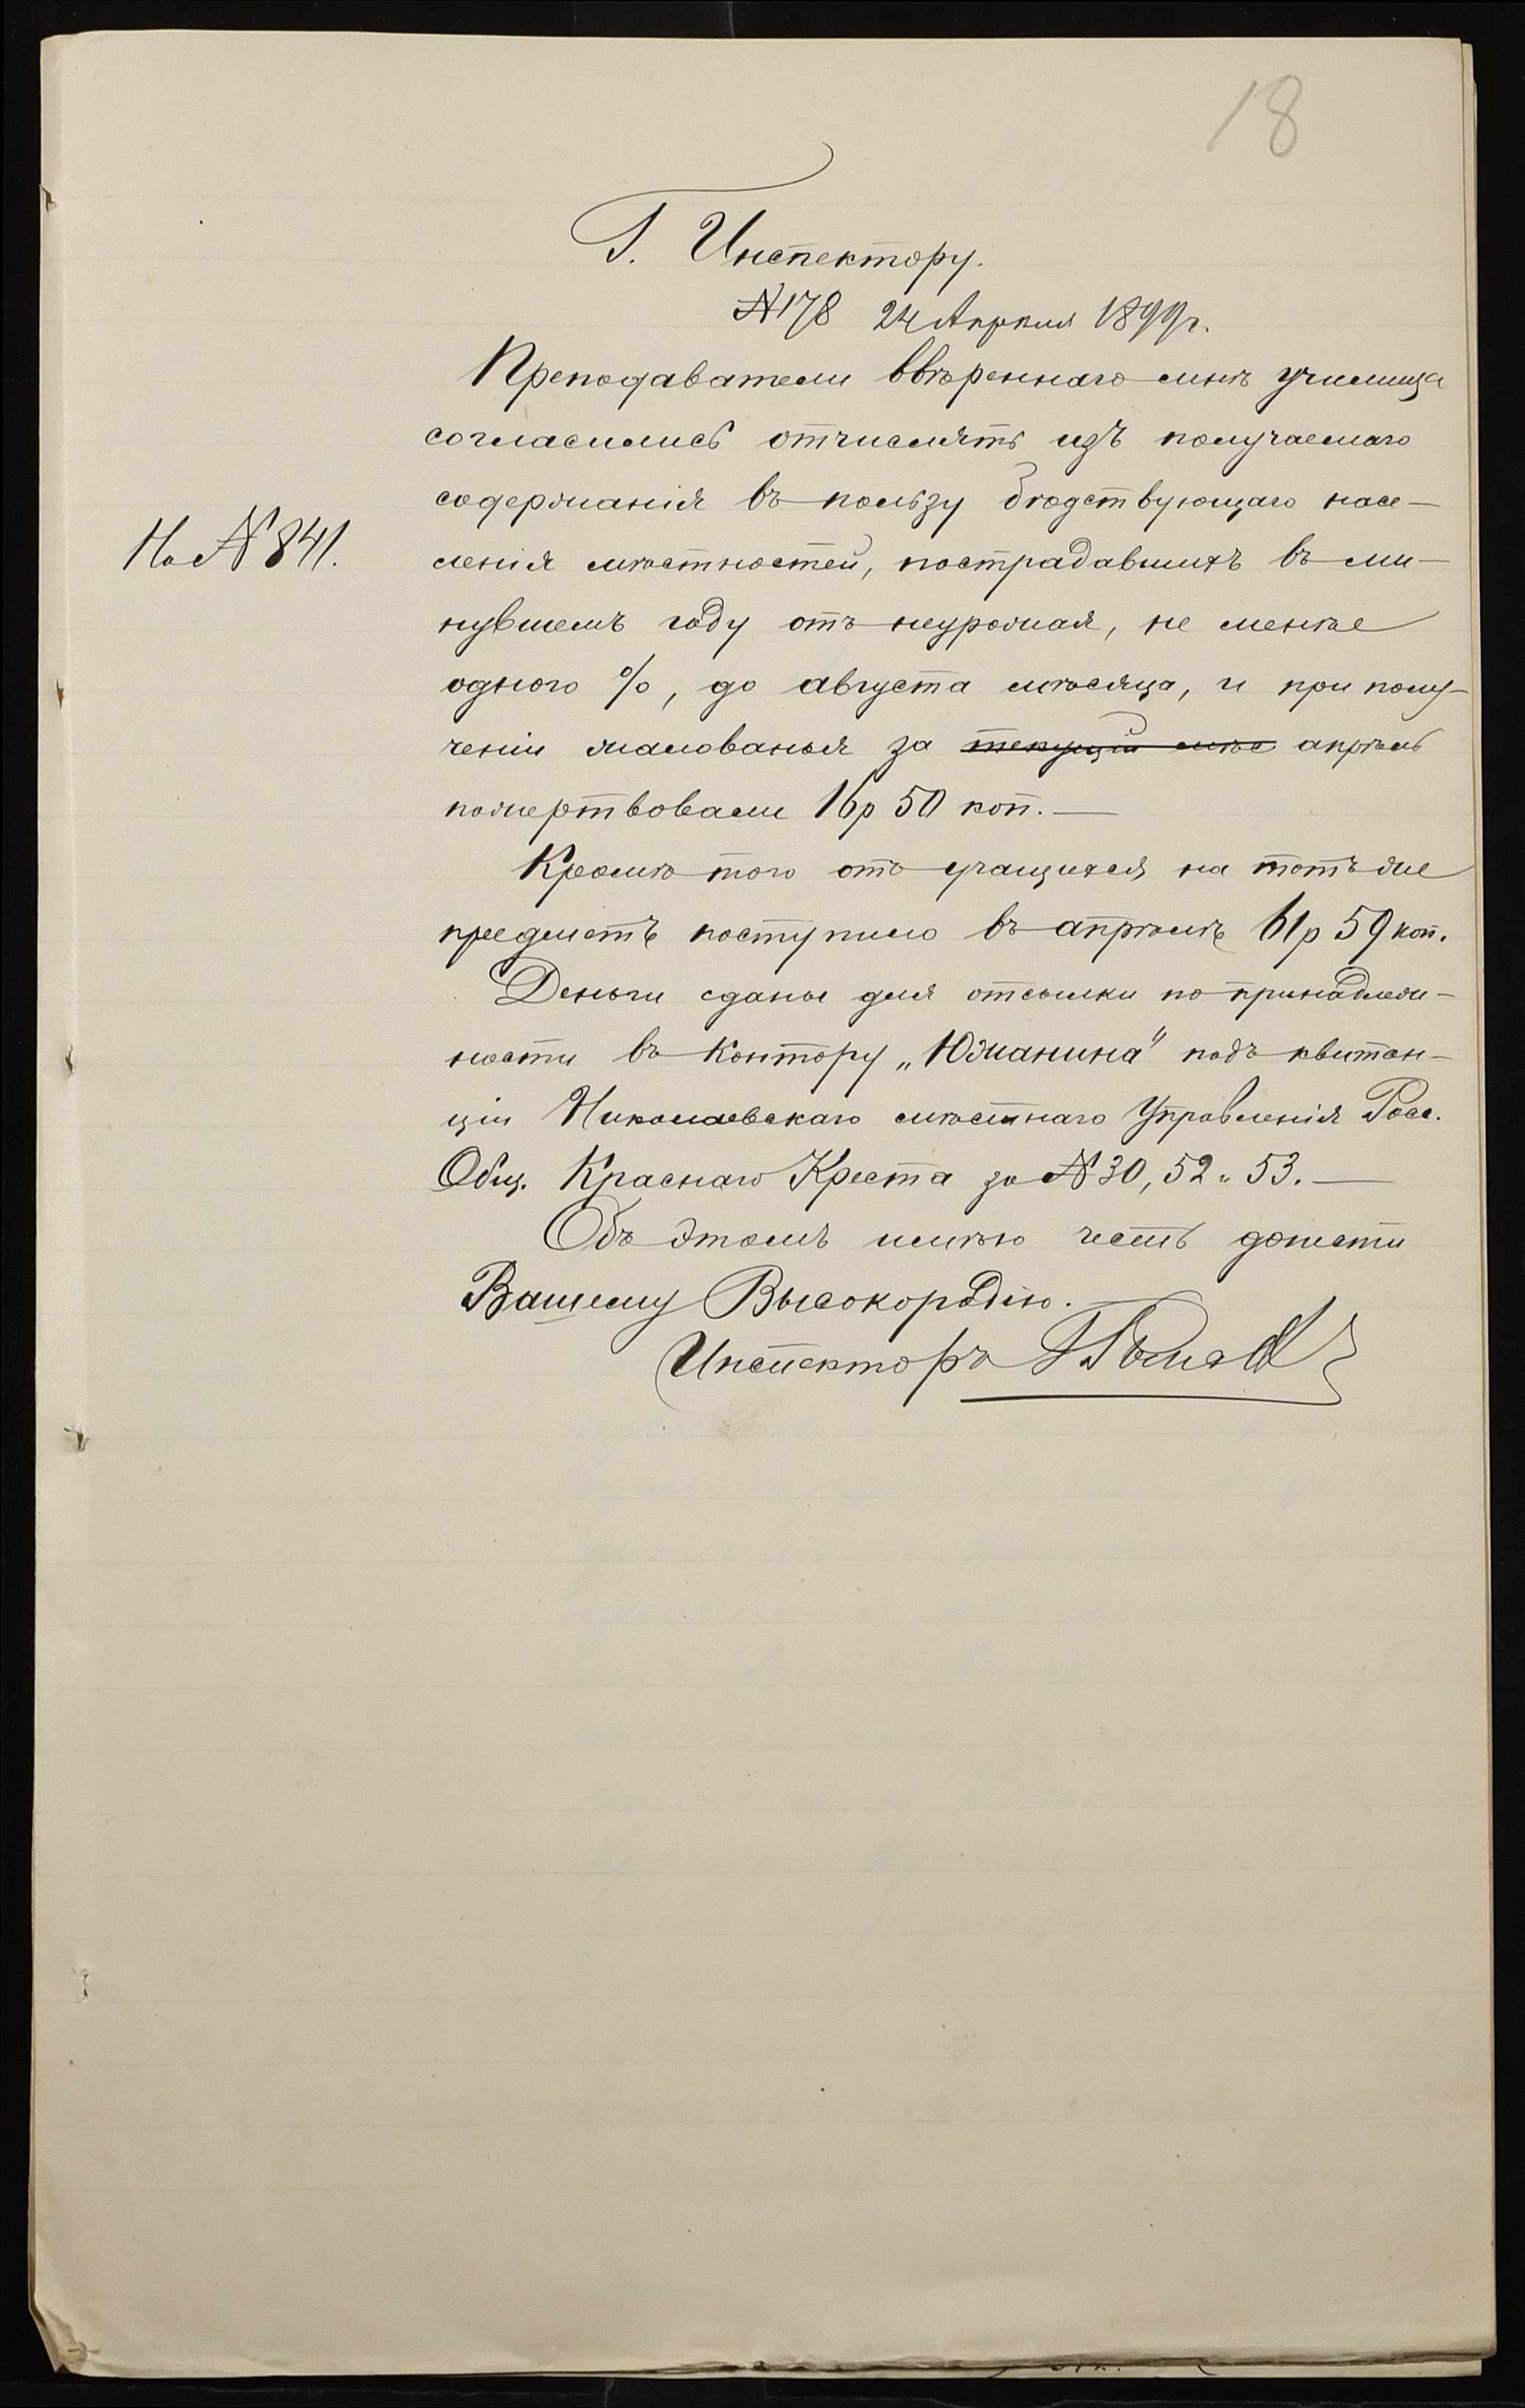 18
Г. Инспектору.
№178 24 Апрѣля 1899г.
Преподаватели ввѣреннаго мнѣ училища
согласились отчислять изъ получаемаго
содержанія въ пользу бѣдствующаго насе-
На №841.
ленія мѣстностей, пострадавшихъ въ ми-
нувшемъ году отъ неурожая, не менѣе
одного %, до августа мѣсяца, и при полу-
ченіи жалованья за текущій мѣс апрѣль
пожертвовали 16р 50 коп.—
Кромѣ того отъ учащихся на тотъ же
предметъ поступило въ апрѣлѣ 61р 59 коп.
Деньги сданы для отсылки по принадлеж-
ности въ Контору „Южанина" подъ квитан-
ціи Николаевскаго мѣстнаго Управленія Росс.
Общ. Краснаго Креста за №30, 52 и 53.—
Объ этомъ имѣю честь донести
Вашему Высокородію.—
Инспекторъ